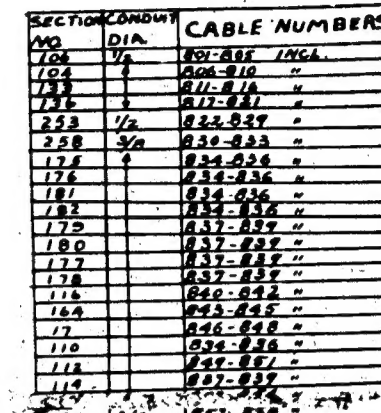 SECTION CONDUIT CABLE NUMBERS
NO. DIA.
106 1/2 801-805 INCL.
104 806-810 "
133 811-816 "
136 817-821 "
253 1/2 822-829 "
258 3/8 830-833 "
175 834-836 "
176 834-836 "
181 834-836 "
182 834-836 "
179 837-839 "
180 837-839 "
177 837-839 "
178 837-839 "
116 840-842 "
164 843-845 "
17 846-848 "
110 834-836 "
112 849-851 "
114 837-839 "